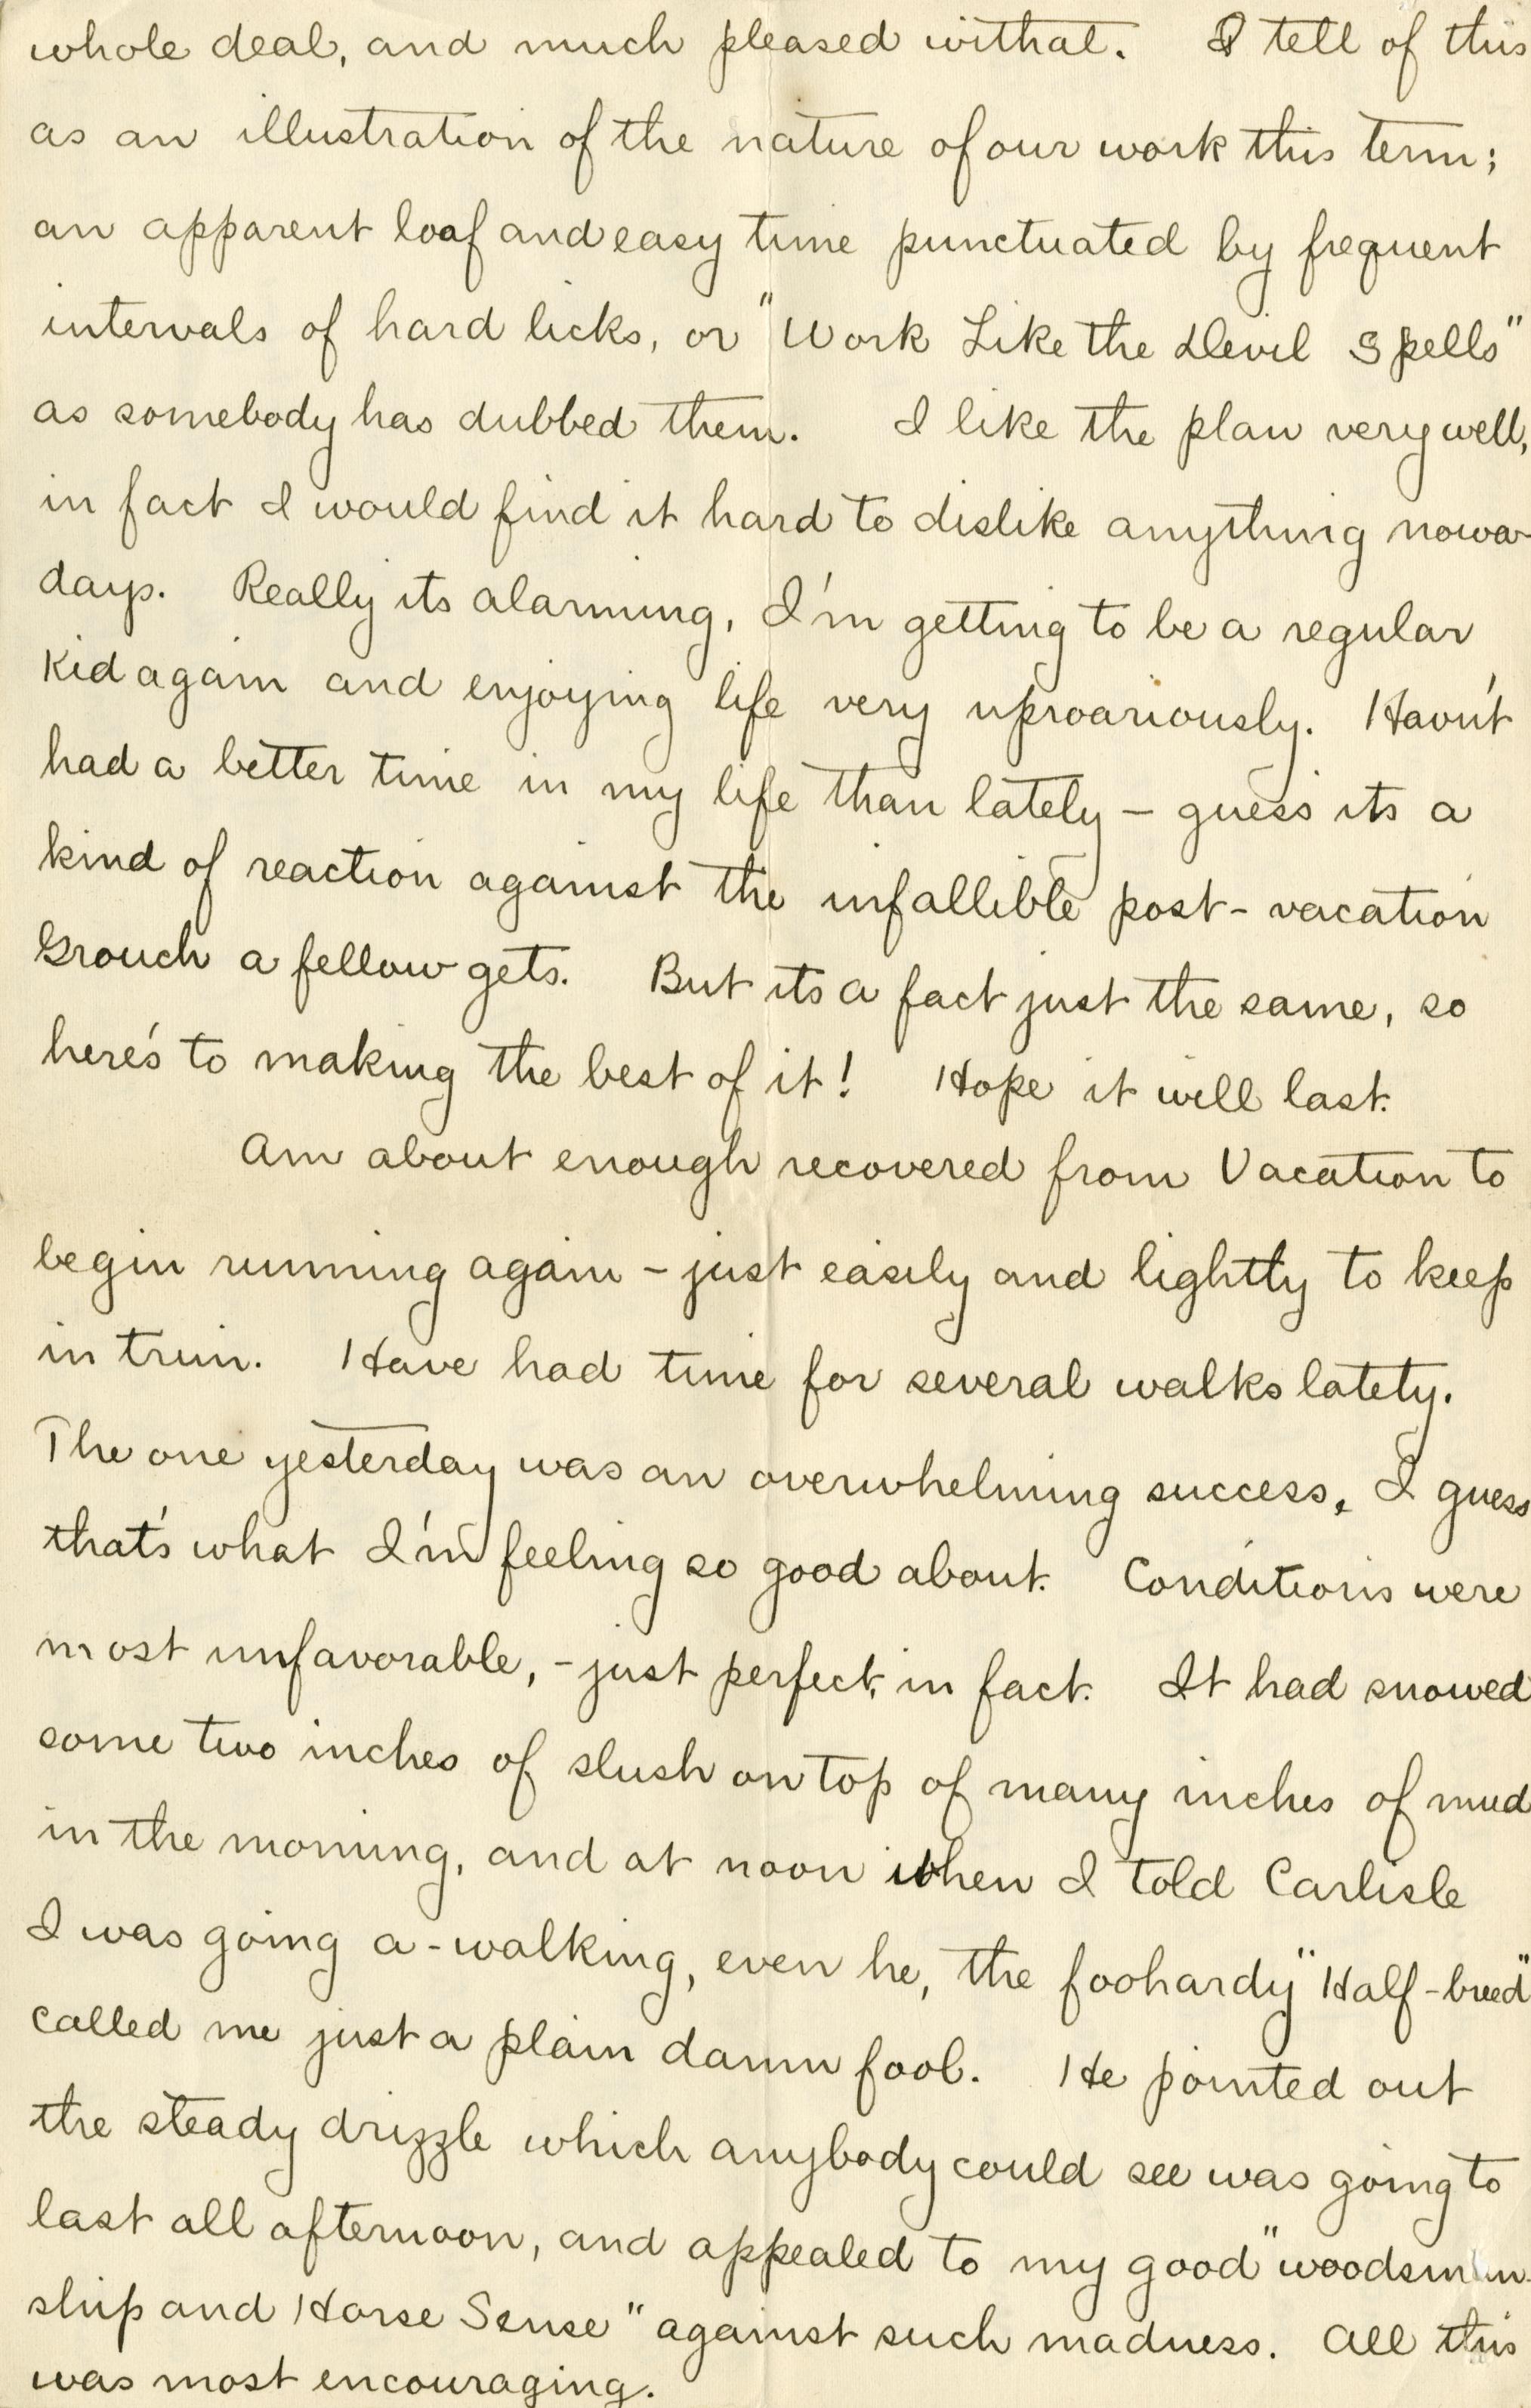 whole deal, and much pleased withal. I tell of this
as an illustration of the nature of our work this term;
an apparent loaf and easy time punctuated by frequent
intervals of hard licks, or "Work Like the Devil Spells"
as somebody has dubbed them. I like the plan very well,
in fact I would find it hard to dislike anything nowa-
days. Really its alarming, I'm getting to be a regular
Kid again and enjoying life very uproariously. Hav'nt
had a better time in my life than lately – guess its a
kind of reaction against the infallible post-vacation
Grouch a fellow gets. But its a fact just the same, so
here's to making the best of it! Hope it will last.
Am about enough recovered from Vacation to
begin running again – just easily and lightly to keep
in trim. Have had time for several walks lately.
The one yesterday was an overwhelming success, I guess
that's what I'm feeling so good about. Conditions were
most unfavorable, - just perfect, in fact. It had snowed
some two inches of slush on top of many inches of mud
in the morning, and at noon when I told Carlisle
I was going a-walking, even he, the foohardy "Half-breed"
called me just a plain damn fool. He pointed out
the steady drizzle which anybody could see was going to
last all afternoon, and appealed to my good "woodsman-
ship and Horse Sense" against such madness. All this
was most encouraging.